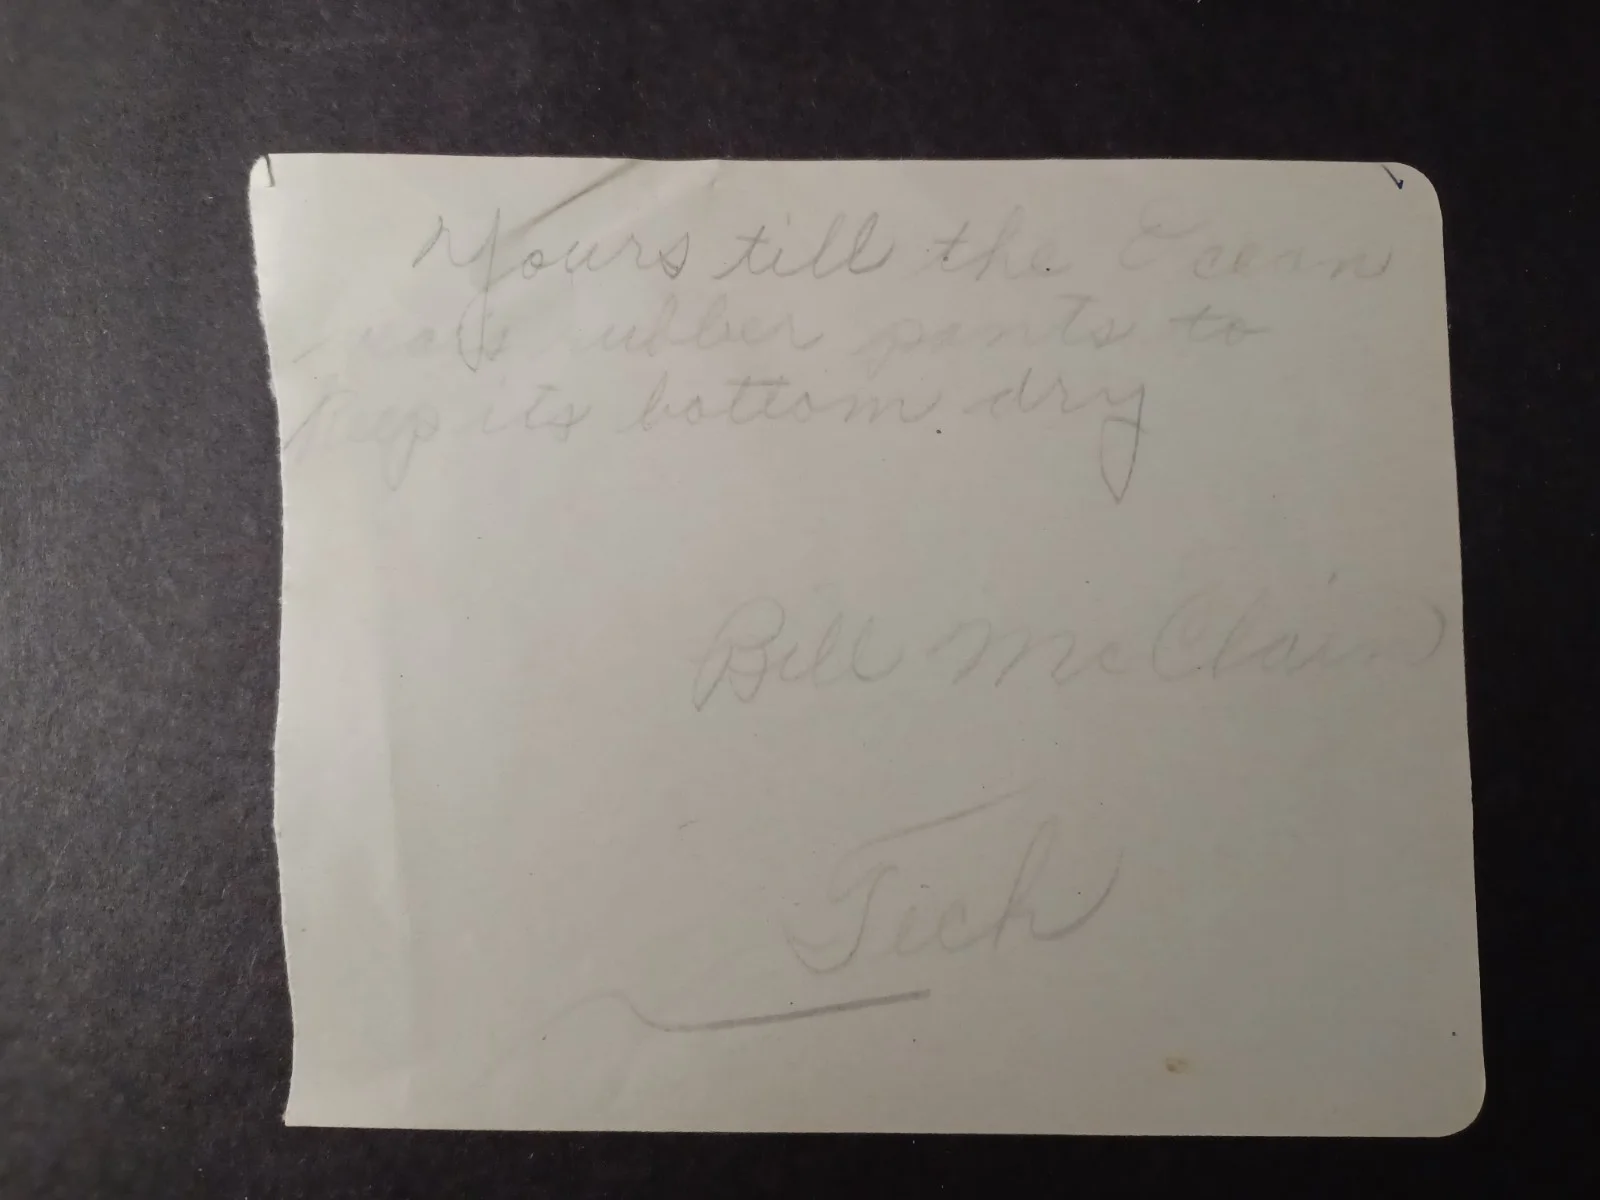 Yours till the Ocean
wears rubber pants to
Keep its bottom dry
Bill McClain
Tech